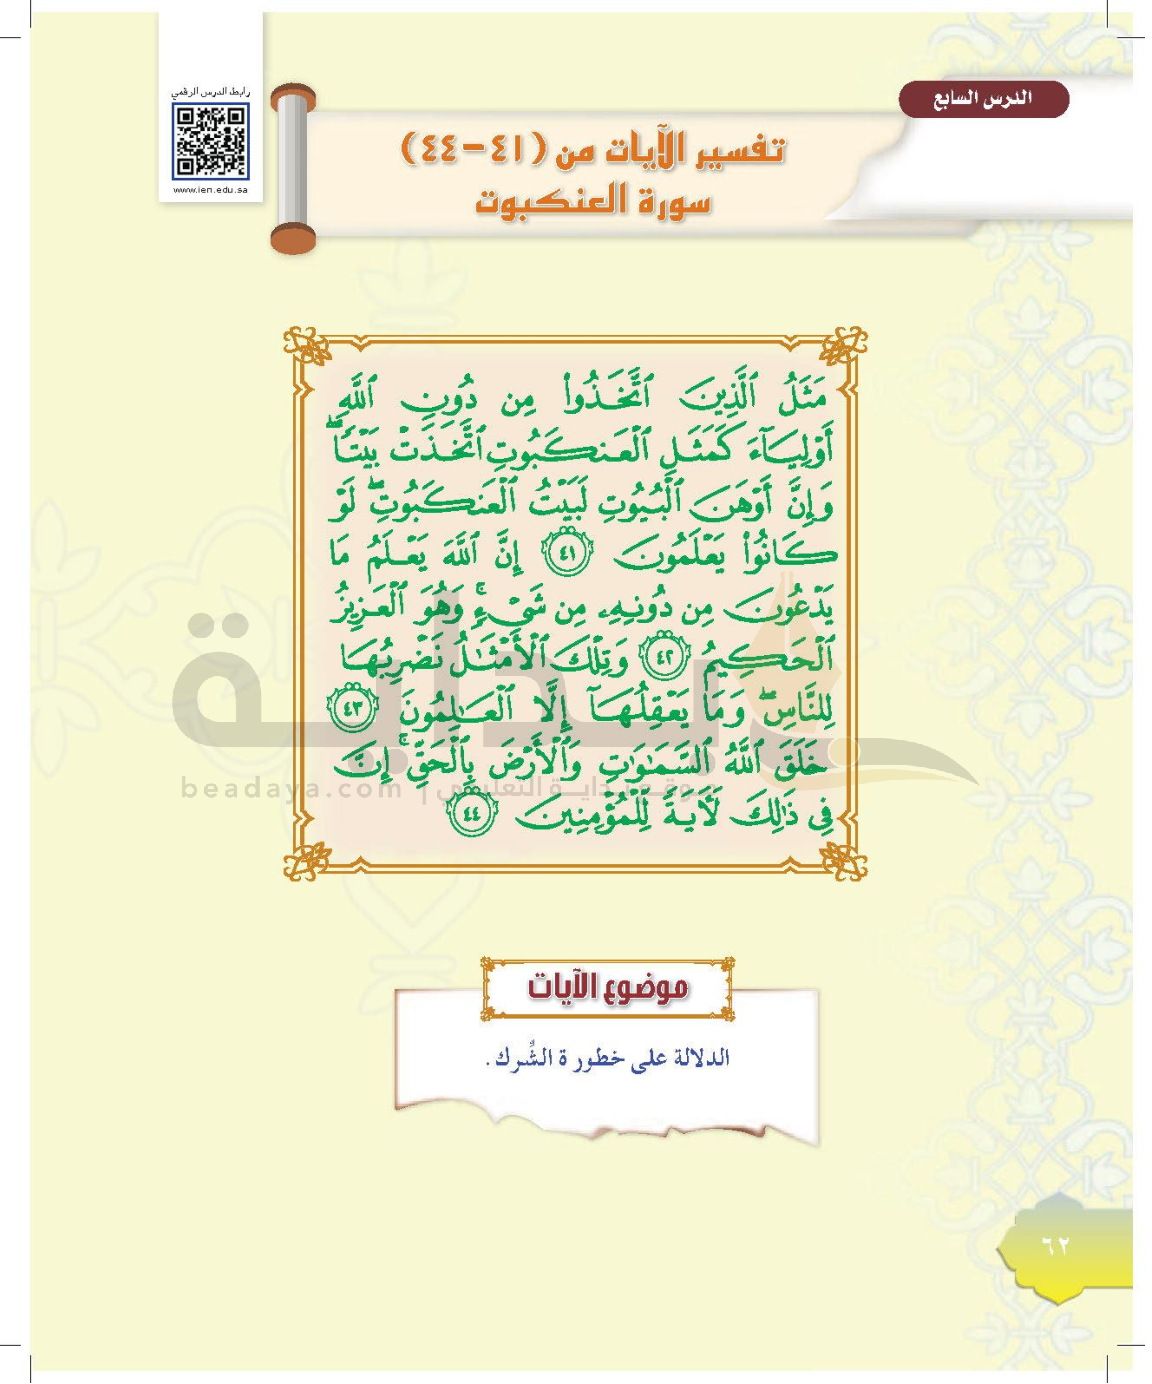 رابط الدرس الرقمي
www.ien.edu.sa
الدرس السابع
تفسير الآيات من (٤١-٤٤)
سورة العنكبوت
مَثَلُ ٱلَّذِينَ ٱتَّخَذُوا۟ مِن دُونِ ٱللَّهِ
أَوْلِيَآءَ كَمَثَلِ ٱلْعَنكَبُوتِ ٱتَّخَذَتْ بَيْتًا ۖ
وَإِنَّ أَوْهَنَ ٱلْبُيُوتِ لَبَيْتُ ٱلْعَنكَبُوتِ ۖ لَوْ
كَانُوا۟ يَعْلَمُونَ ٤١ إِنَّ ٱللَّهَ يَعْلَمُ مَا
يَدْعُونَ مِن دُونِهِۦ مِن شَىْءٍ ۚ وَهُوَ ٱلْعَزِيزُ
ٱلْحَكِيمُ ٤٢ وَتِلْكَ ٱلْأَمْثَٰلُ نَضْرِبُهَا
لِلنَّاسِ ۖ وَمَا يَعْقِلُهَآ إِلَّا ٱلْعَٰلِمُونَ ٤٣
خَلَقَ ٱللَّهُ ٱلسَّمَٰوَٰتِ وَٱلْأَرْضَ بِٱلْحَقِّ ۚ إِنَّ
فِى ذَٰلِكَ لَءَايَةً لِّلْمُؤْمِنِينَ ٤٤
بداية
موقع بداية التعليمي | beadaya.com
موضوع الآيات
الدلالة على خطورة الشِّرك .
٦٢